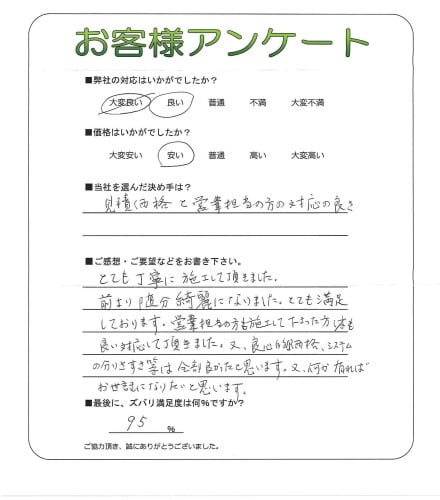 お客様アンケート
■弊社の対応はいかがでしたか？
大変良い 良い 普通 不満 大変不満
■価格はいかがでしたか？
大変安い 安い 普通 高い 大変高い
■当社を選んだ決め手は？
見積価格と営業担当の方の対応の良さ
■ご感想・ご要望などをお書き下さい。
とても丁寧に施工して頂きました。
前より随分綺麗になりました。とても満足
しております。営業担当の方も施工して下さった方も
良い対応して頂きました。又、良心的価格、システム
の分りやすさ等は全部良かったと思います。又、何か有れば
お世話になりたいと思います。
■最後に、ズバリ満足度は何％ですか？
95 ％
ご協力頂き、誠にありがとうございました。